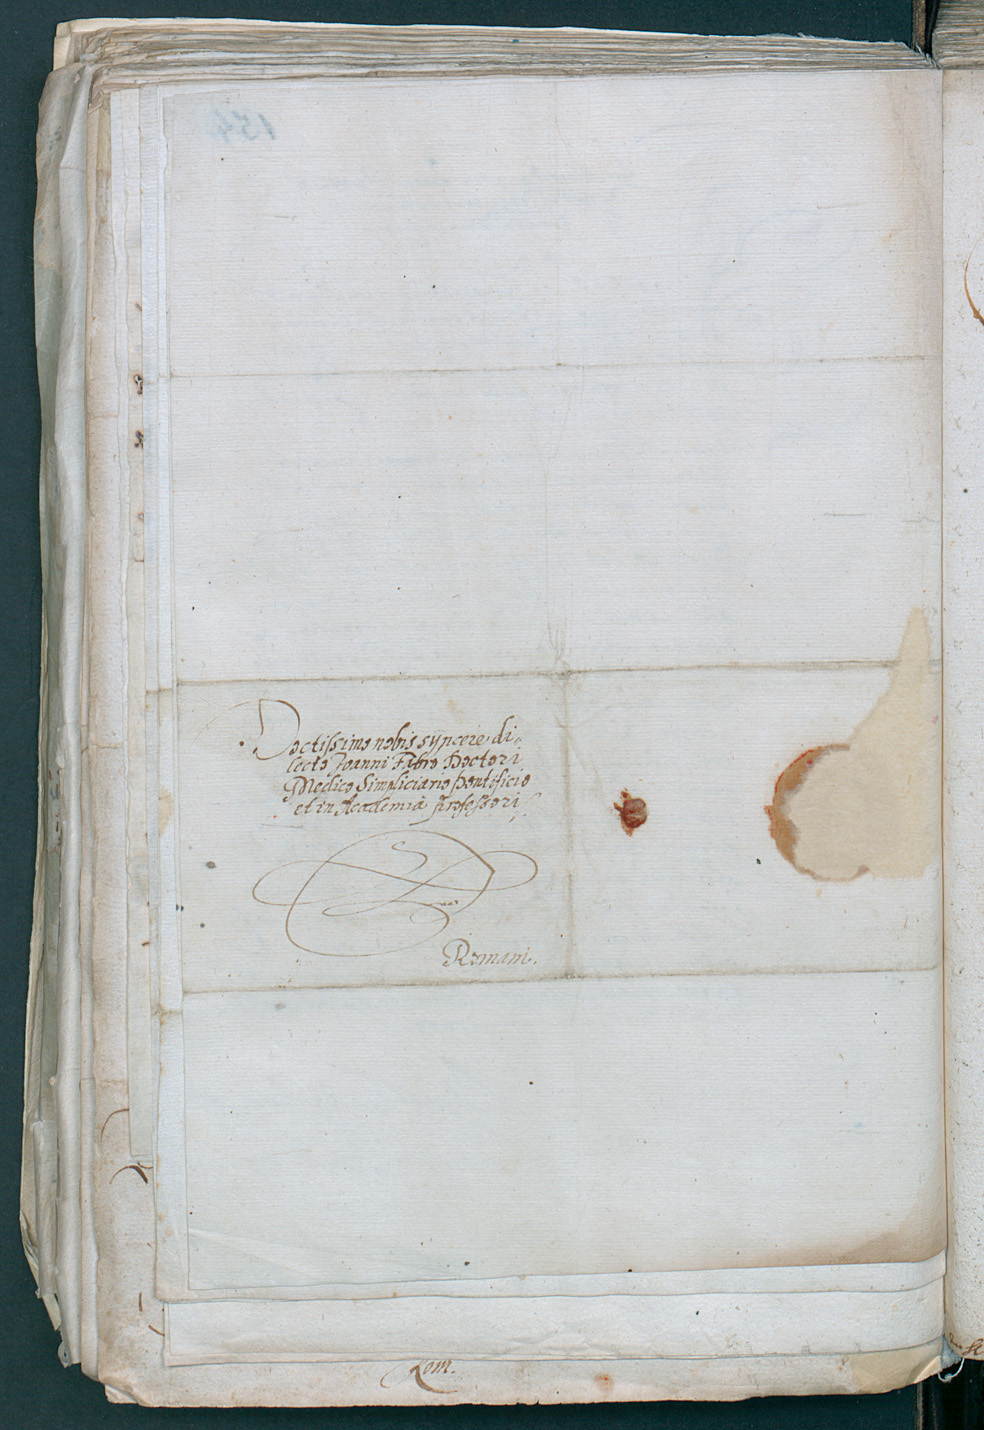 Doctissimo nobis syncere di-
lecto Joanni Fabro Doctori
Medico Simpliciario Pontificio
et in Academia professori
Romam.
Rom.